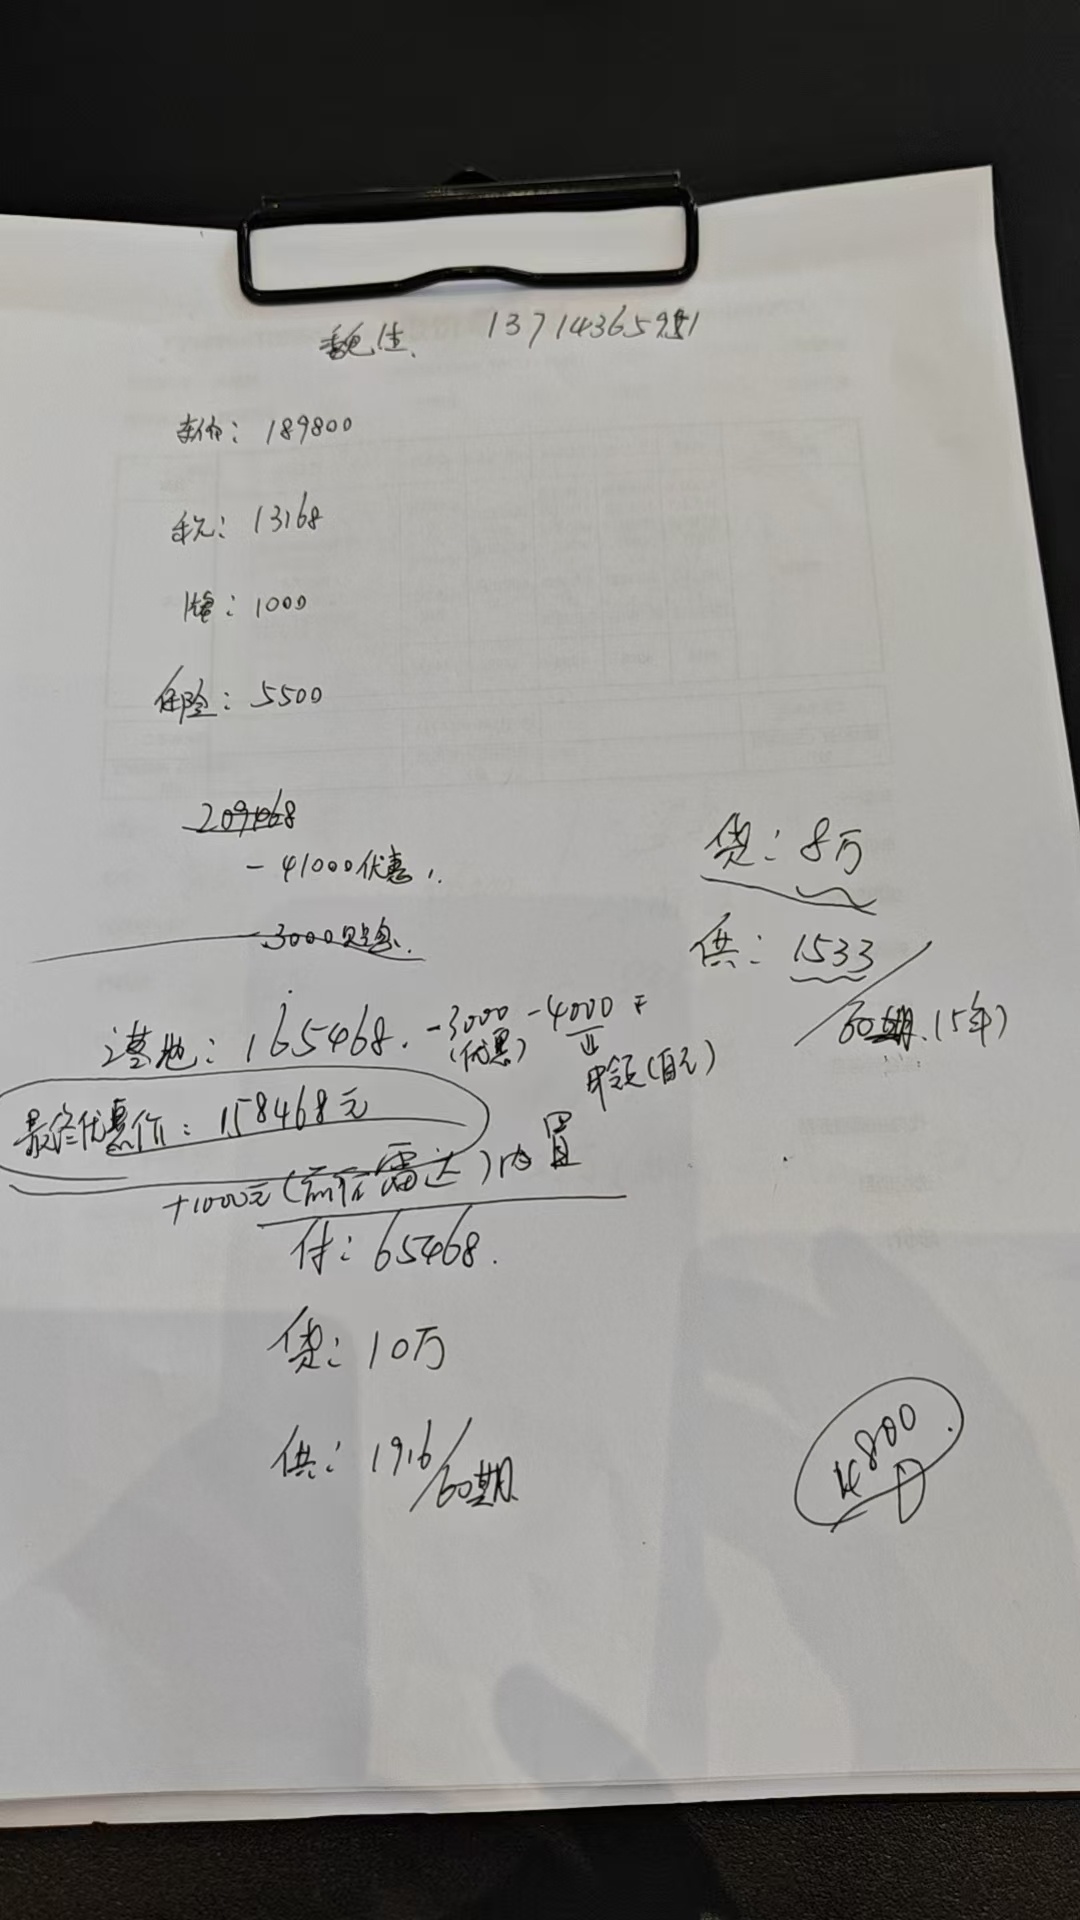 魏生. 137143659
车价: 189800
税: 13168
牌: 1000
保险: 5500
209468
-41000优惠.
-3000贴息.
落地: 165468. -3000 -4000
(优惠) 申领(国元)
最终优惠价: 158468元
+1000元(前后雷达)内置
付: 65468.
贷: 10万
供: 1916/60期
贷: 8万
供: 1533/60期.(5年)
800